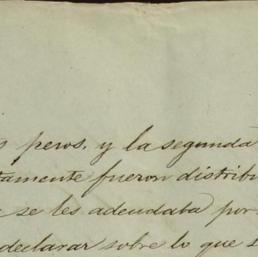 s pesos, y la segunda
tamente fueron distribu
se les adeudaba por
declarar sobre lo que s